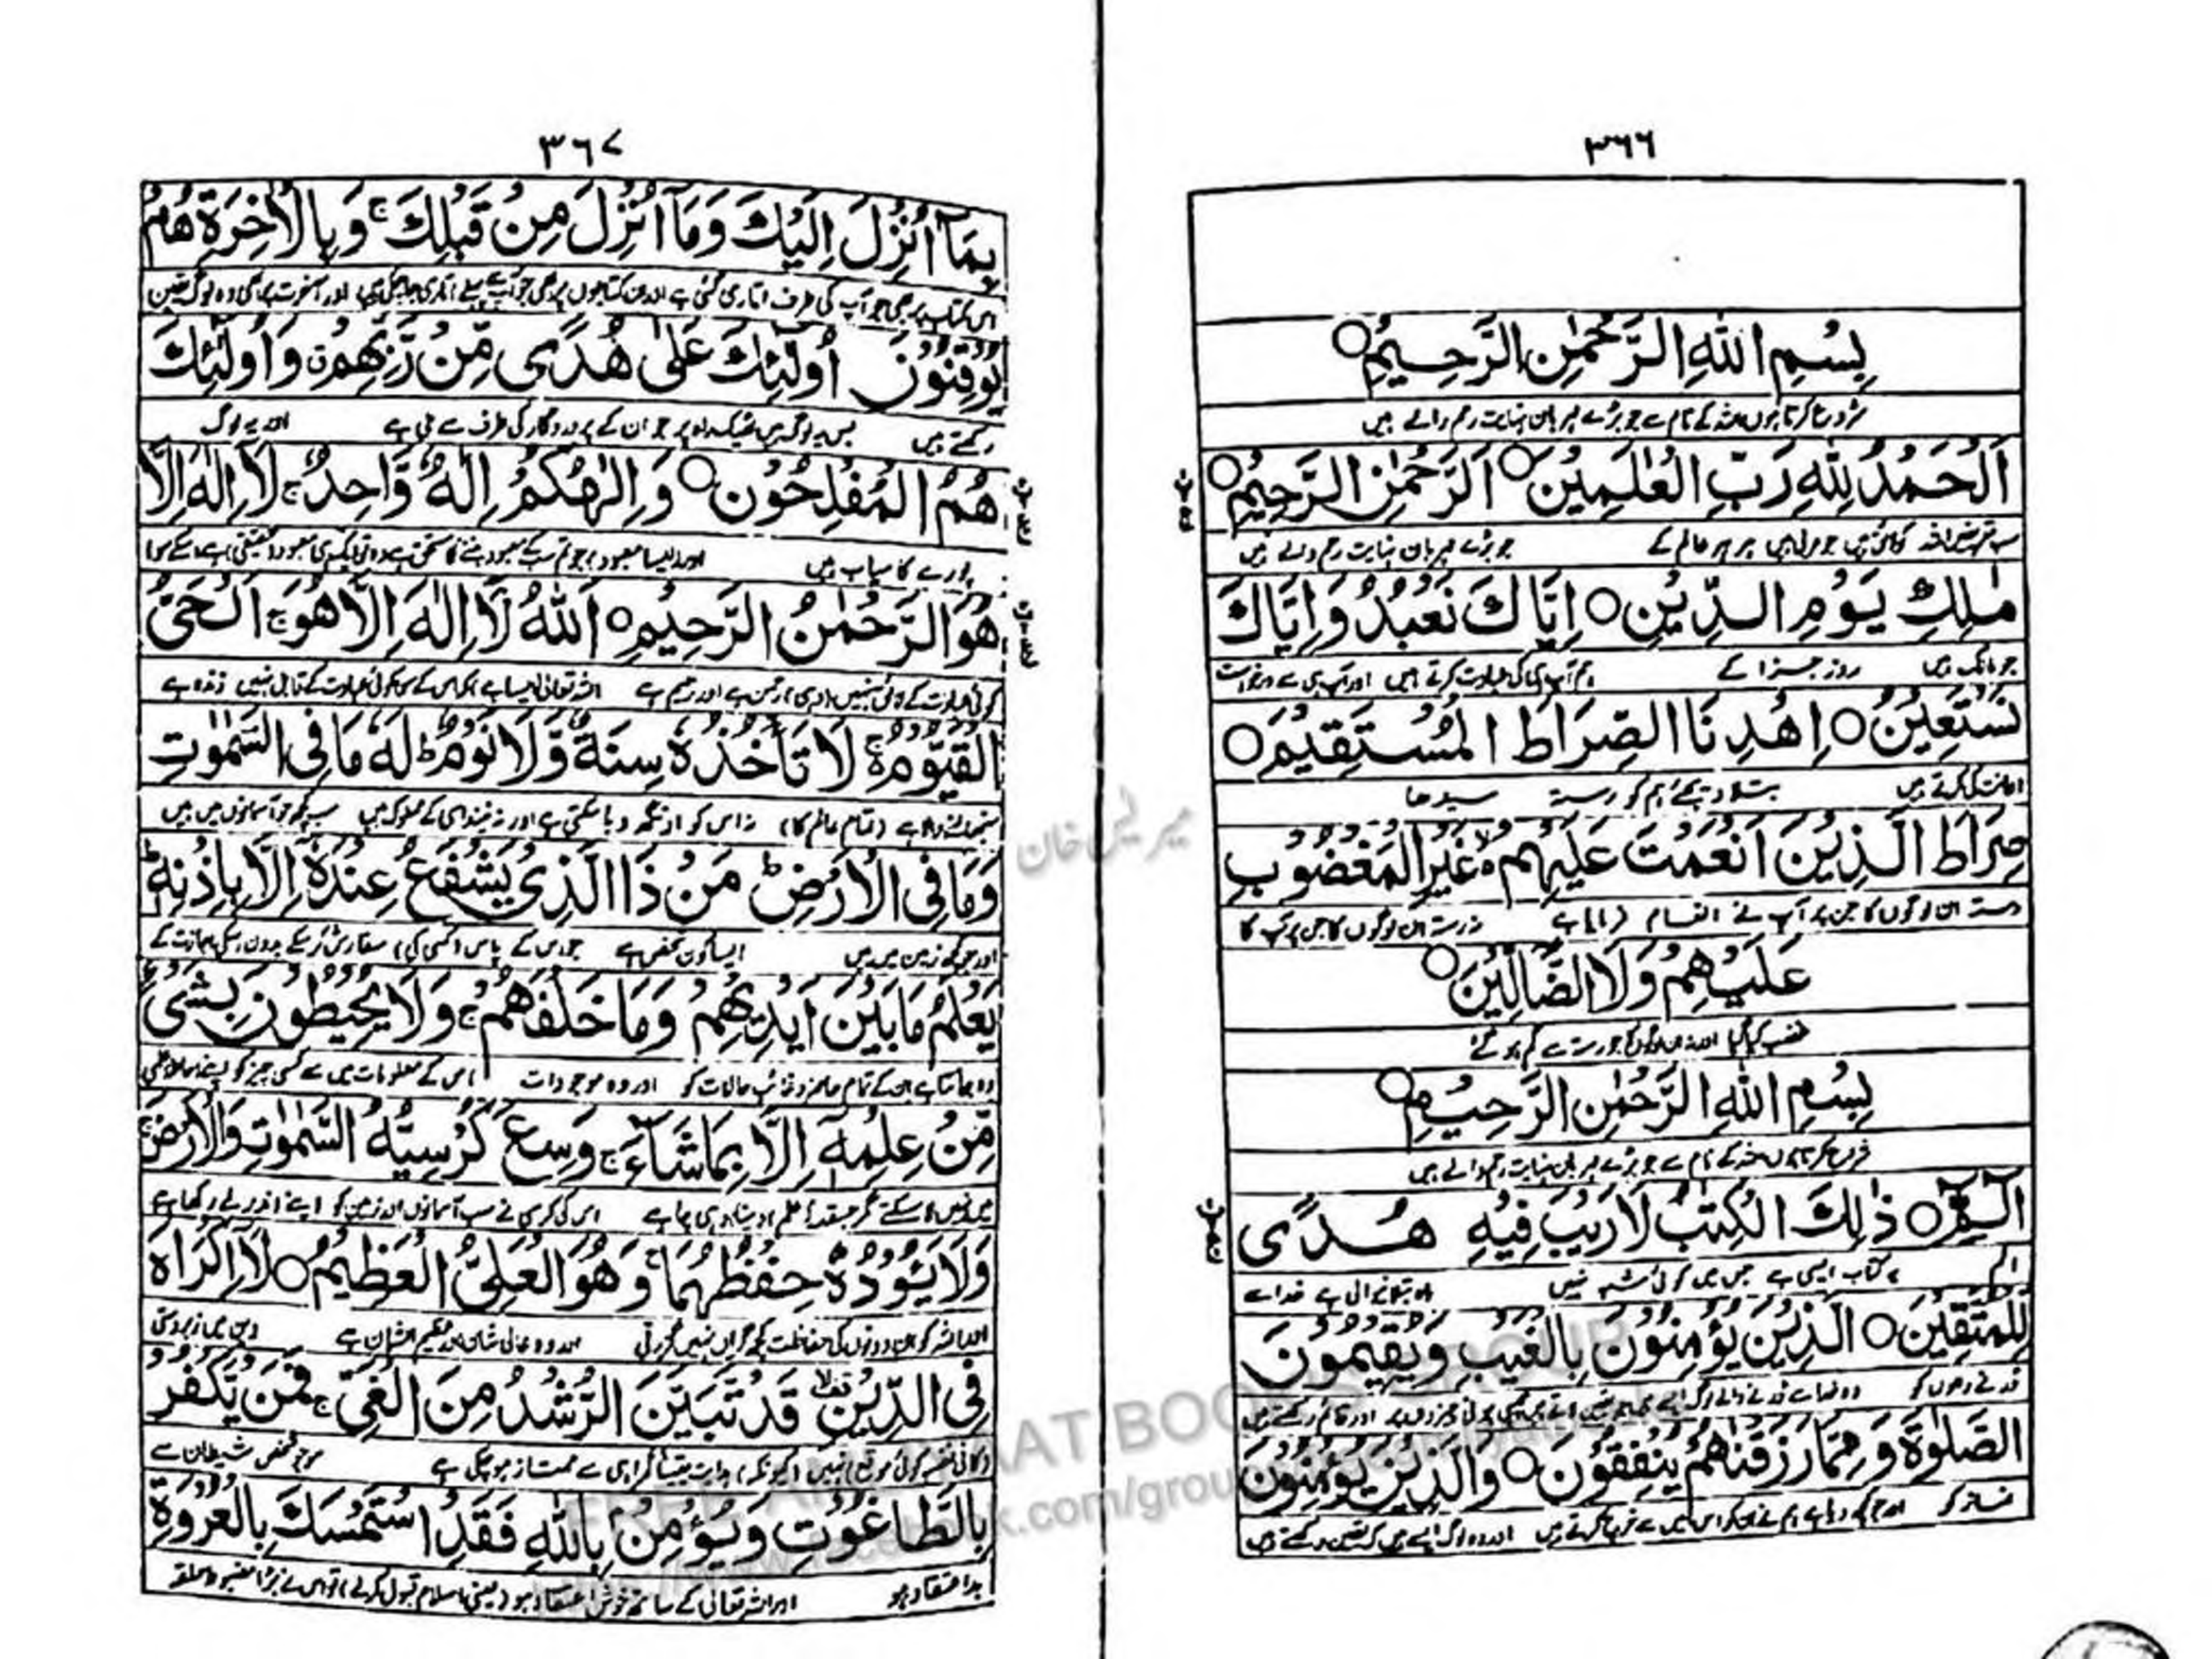 ٣٦٦
بِسْمِ اللهِ الرَّحْمٰنِ الرَّحِيْمِ○
شروع کرتا ہوں اللہ کے نام سے جو بڑے مہربان نہایت رحم والے ہیں
اَلْحَمْدُ لِلّٰهِ رَبِّ الْعٰلَمِيْنَ○ اَلرَّحْمٰنِ الرَّحِيْمِ○
سب تعریفیں اللہ کو لائق ہیں جو مربی ہیں ہر ہر عالم کے جو بڑے مہربان نہایت رحم والے ہیں
مٰلِكِ يَوْمِ الدِّيْنِ○ اِيَّاكَ نَعْبُدُ وَاِيَّاكَ
جو مالک ہیں روز جزا کے ہم آپ ہی کی عبادت کرتے ہیں اور آپ ہی سے درخواست
نَسْتَعِيْنُ○ اِهْدِنَا الصِّرَاطَ الْمُسْتَقِيْمَ○
اعانت کی کرتے ہیں بتلا دیجئے ہم کو رستہ سیدھا
صِرَاطَ الَّذِيْنَ اَنْعَمْتَ عَلَيْهِمْ ۙ غَيْرِ الْمَغْضُوْبِ
رستہ ان لوگوں کا جن پر آپ نے انعام فرمایا ہے نہ رستہ ان لوگوں کا جن پر آپ کا
عَلَيْهِمْ وَلَا الضَّالِّيْنَ○
غضب کیا گیا اور نہ ان لوگوں کا جو رستہ سے گم ہو گئے
بِسْمِ اللهِ الرَّحْمٰنِ الرَّحِيْمِ○
شروع کرتا ہوں اللہ کے نام سے جو بڑے مہربان نہایت رحم والے ہیں
الٓـمّٓ○ ذٰلِكَ الْكِتٰبُ لَا رَيْبَ فِيْهِ هُدًى
الم یہ کتاب ایسی ہے جس میں کوئی شبہ نہیں راہ بتلانے والی ہے خدا سے
لِّلْمُتَّقِيْنَ○ الَّذِيْنَ يُؤْمِنُوْنَ بِالْغَيْبِ وَيُقِيْمُوْنَ
ڈرنے والوں کو وہ خدا سے ڈرنے والے لوگ ایسے ہیں کہ یقین لاتے ہیں چھپی ہوئی چیزوں پر اور قائم رکھتے ہیں
الصَّلٰوةَ وَمِمَّا رَزَقْنٰهُمْ يُنْفِقُوْنَ○ وَالَّذِيْنَ يُؤْمِنُوْنَ
نماز کو اور جو کچھ دیا ہے ہم نے ان کو اس میں سے خرچ کرتے ہیں اور وہ لوگ ایسے ہیں کہ یقین رکھتے ہیں
٣٦٧
بِمَآ اُنْزِلَ اِلَيْكَ وَمَآ اُنْزِلَ مِنْ قَبْلِكَ ۚ وَبِالْاٰخِرَةِ هُمْ
اس کتاب پر بھی جو آپ کی طرف اتاری گئی ہے اور ان کتابوں پر بھی جو آپ سے پہلے اتاری جا چکی ہیں اور آخرت پر بھی وہ لوگ یقین
يُوْقِنُوْنَ اُولٰٓئِكَ عَلٰى هُدًى مِّنْ رَّبِّهِمْ ۗ وَاُولٰٓئِكَ
رکھتے ہیں بس یہ لوگ ہیں ٹھیک راہ پر جو ان کے پروردگار کی طرف سے ملی ہے اور یہ لوگ
هُمُ الْمُفْلِحُوْنَ○ وَاِلٰهُكُمْ اِلٰهٌ وَّاحِدٌ ۚ لَآ اِلٰهَ اِلَّا
پورے کامیاب ہیں اور ایسا معبود جو تم سب کے معبود بننے کا مستحق ہے وہ تو ایک ہی معبود حقیقی ہے اسکے سوا
هُوَ الرَّحْمٰنُ الرَّحِيْمُ○ اَللهُ لَآ اِلٰهَ اِلَّا هُوَ ۚ اَلْحَىُّ
کوئی عبادت کے لائق نہیں وہی رحمٰن ہے اور رحیم ہے اللہ تعالیٰ ایسا ہے کہ اس کے سوا کوئی عبادت کے قابل نہیں زندہ ہے
الْقَيُّوْمُ ۚ لَا تَاْخُذُهٗ سِنَةٌ وَّلَا نَوْمٌ ؕ لَهٗ مَا فِى السَّمٰوٰتِ
سنبھالنے والا ہے (تمام عالم کا) نہ اس کو اونگھ دبا سکتی ہے اور نہ نیند اسی کے مملوک ہیں سب کچھ جو آسمانوں میں ہیں
وَمَا فِى الْاَرْضِ ؕ مَنْ ذَا الَّذِىْ يَشْفَعُ عِنْدَهٗٓ اِلَّا بِاِذْنِهٖ ؕ
اور جو کچھ زمین میں ہیں ایسا کون شخص ہے جو اس کے پاس (کسی کی) سفارش کر سکے بدون اسکی اجازت کے
يَعْلَمُ مَا بَيْنَ اَيْدِيْهِمْ وَمَا خَلْفَهُمْ ۚ وَلَا يُحِيْطُوْنَ بِشَىْءٍ
وہ جانتا ہے ان کے تمام حاضر و غائب حالات کو اور وہ موجودات اس کے معلومات میں سے کسی چیز کو اپنے احاطہ علمی
مِّنْ عِلْمِهٖٓ اِلَّا بِمَا شَآءَ ۚ وَسِعَ كُرْسِيُّهُ السَّمٰوٰتِ وَالْاَرْضَ ۚ
میں نہیں لا سکتے مگر جسقدر علم دینا وہی چاہے اس کی کرسی نے سب آسمانوں اور زمین کو اپنے اندر لے رکھا ہے
وَلَا يَئُوْدُهٗ حِفْظُهُمَا ۚ وَهُوَ الْعَلِىُّ الْعَظِيْمُ○ لَآ اِكْرَاهَ
اور اللہ کو ان دونوں کی حفاظت کچھ گراں نہیں گزرتی اور وہ عالی شان اور عظیم الشان ہے دین میں زبردستی
فِى الدِّيْنِ قَدْ تَّبَيَّنَ الرُّشْدُ مِنَ الْغَىِّ ۚ فَمَنْ يَّكْفُرْ
کا فی نفسہ کوئی موقع نہیں (کیونکہ) ہدایت یقیناً گمراہی سے ممتاز ہو چکی ہے سو جو شخص شیطان سے
بِالطَّاغُوْتِ وَيُؤْمِنْ بِاللهِ فَقَدِ اسْتَمْسَكَ بِالْعُرْوَةِ
بد اعتقاد ہو اور اللہ تعالیٰ کے ساتھ خوش اعتقاد ہو (یعنی اسلام قبول کرلے) تو اس نے بڑا مضبوط حلقہ
FREE AMLIYAAT BOOKS GROUP